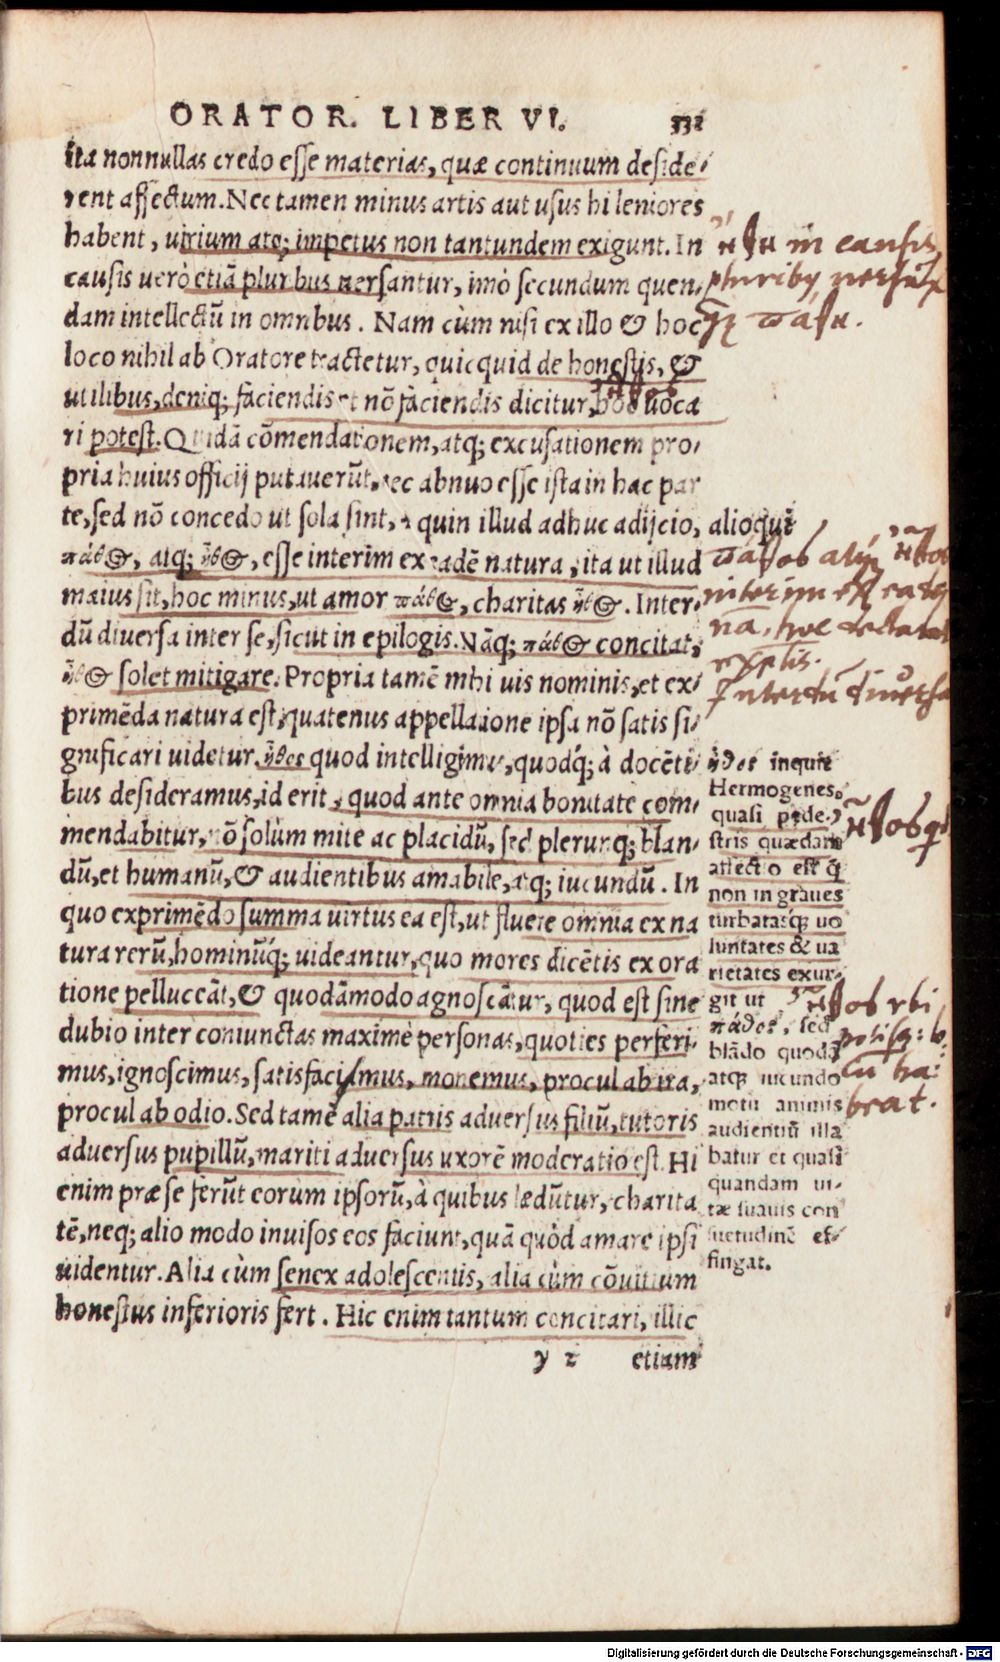 ORATOR. LIBER VI. 332
ita nonnullas credo esse materias, quæ continuum deside-
rent affectum. Nec tamen minus artis aut usus hi leniores
habent, uirium atq; impetus non tantundem exigunt. In
causis uerò etiã pluribus uersantur, imò secundum quen-
dam intellectũ in omnibus. Nam cùm nisi ex illo & hoc
loco nihil ab Oratore tractetur, quicquid de honestis, &
utilibus, deniq; faciendis et nõ faciendis dicitur, ἦθος uoca
ri potest. Quidã cõmendationem, atq; excusationem pro-
pria huius officij putauerũt, nec abnuo esse ista in hac par
te, sed nõ concedo ut sola sint, quin illud adhuc adijcio, alioqui
πάθος, atq; ἦθος, esse interim ex eadẽ natura, ita ut illud
maius sit, hoc minus, ut amor πάθος, charitas ἦθος. Inter-
dũ diuersa inter se, sicut in epilogis. Nãq; πάθος concitat,
ἦθος solet mitigare. Propria tamẽ mihi uis nominis, et ex-
primẽda natura est, quatenus appellatione ipsa nõ satis si-
gnificari uidetur. ἦθος quod intelligimus, quodq́; à docẽti-
bus desideramus, id erit, quod ante omnia bonitate com-
mendabitur, nõ solùm mite ac placidũ, sed plerunq; blan-
dũ, et humanũ, & audientibus amabile, atq; iucundũ. In
quo exprimẽdo summa uirtus ea est, ut fluere omnia ex na
tura rerũ, hominũq́; uideantur, quo mores dicẽtis ex ora
tione pelluceãt, & quodãmodo agnoscãtur, quod est sine
dubio inter coniunctas maximè personas, quoties perferi-
mus, ignoscimus, satisfacimus, monemus, procul ab ira,
procul ab odio. Sed tamẽ alia patris aduersus filiũ, tutoris
aduersus pupillũ, mariti aduersus uxorẽ moderatio est. Hi
enim præ se ferũt eorum ipsorũ, à quibus lædũtur, charita
tẽ, neq; alio modo inuisos eos faciunt, quã quòd amare ipsi
uidentur. Alia cùm senex adolescentis, alia cùm cõuitium
honestius inferioris fert. Hic enim tantum concitari, illic
y 2 etiam
ἤθη in causis
pluribus uersãt
q̃ πάθη.
ἦθος
πάθος atq;
ἦθος
interim
na, hoc declarat
exẽplis.
Interdũ diuersa
ἦθος inquit
Hermogenes,
quasi pede-
stris quædam
affectio est q̃
non in graues
turbatasq́; uo
luntates & ua
rietates exur-
git ut
πάθος, sed
blãdo quodã
atq; iucundo
motu animis
audientiũ illa
batur et quasi
quandam ui-
tæ suauis con
suetudinẽ ef-
fingat.
ἦθος
ἦθος ubi
beat.
Digitalisierung gefördert durch die Deutsche Forschungsgemeinschaft - DFG